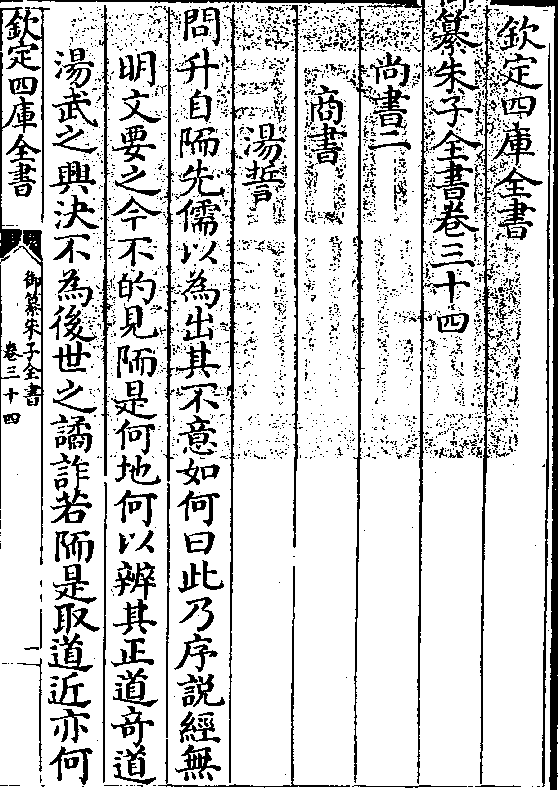 欽定四庫全書
御纂朱子全書卷三十四
尚書二
商書
湯誓
問升自陑先儒以為出其不意如何曰此乃序説經無
明文要之今不的見陑是何地何以辨其正道竒道
湯武之興決不為後世之譎詐若陑是取道近亦何
欽定四庫全書
御纂朱子全書
卷三十四
一